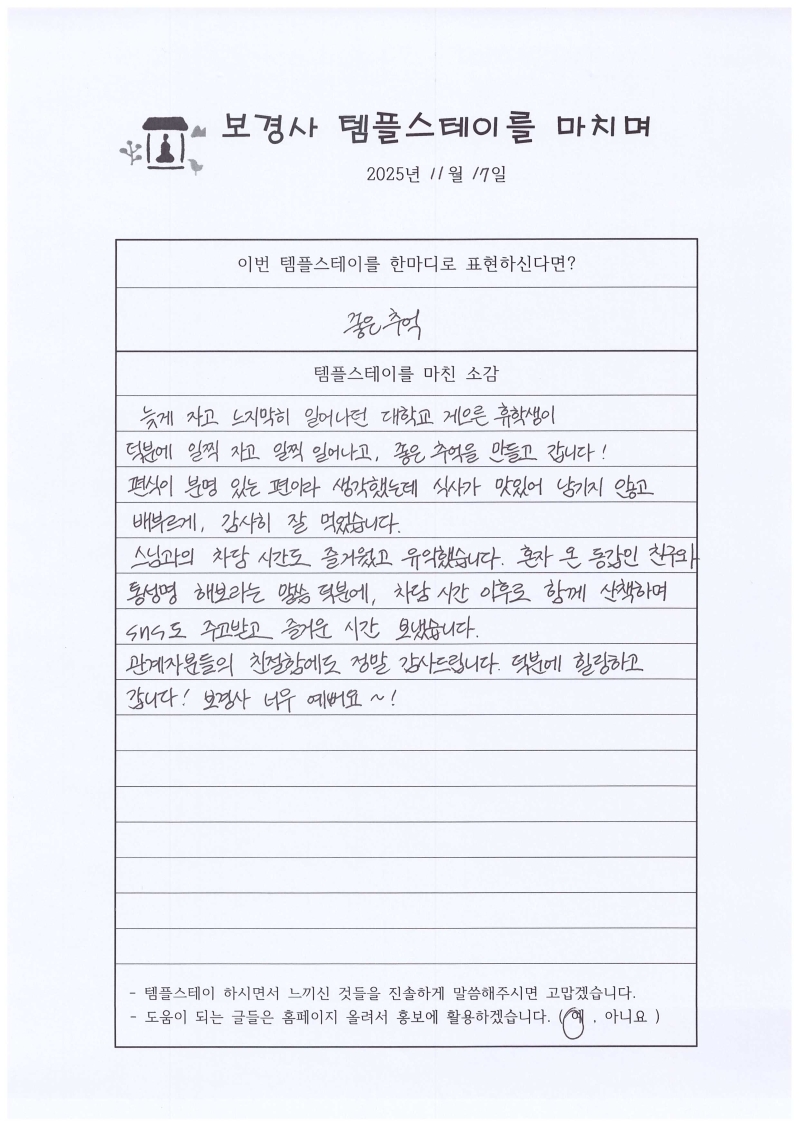 보경사 템플스테이를 마치며
2025년 11월 17일
이번 템플스테이를 한마디로 표현하신다면?
좋은 추억
템플스테이를 마친 소감
늦게 자고 느지막히 일어나던 대학교 게으른 휴학생이
덕분에 일찍 자고 일찍 일어나고, 좋은 추억을 만들고 갑니다!
편식이 분명 있는 편이라 생각했는데 식사가 맛있어 남기지 않고
배부르게, 감사히 잘 먹었습니다.
스님과의 차담 시간도 즐거웠고 유익했습니다. 혼자 온 동갑인 친구와
통성명 해보라는 말씀 덕분에, 차담 시간 이후로 함께 산책하며
sns도 주고받고 즐거운 시간 보냈습니다.
관계자분들의 친절함에도 정말 감사드립니다. 덕분에 힐링하고
갑니다! 보경사 너무 예뻐요~!
- 템플스테이 하시면서 느끼신 것들을 진솔하게 말씀해주시면 고맙겠습니다.
- 도움이 되는 글들은 홈페이지 올려서 홍보에 활용하겠습니다. ( 예 , 아니요 )